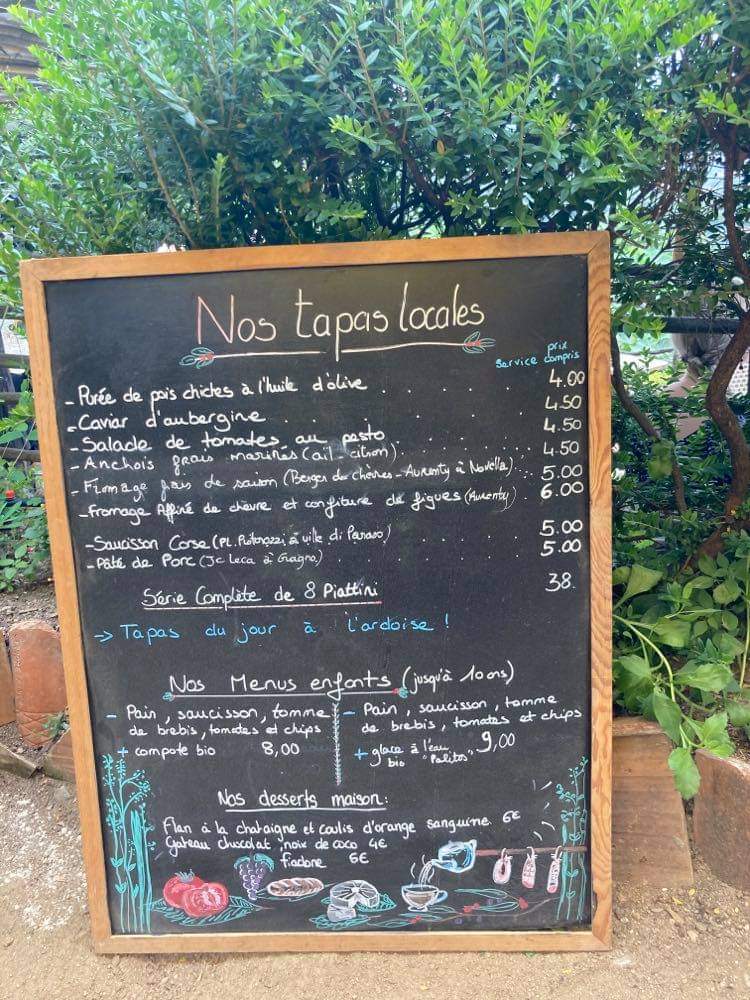 Nos tapas locales
prix
service compris
- Purée de pois chiches à l'huile d'olive . . . . . 4.00
- Caviar d'aubergine . . . . . . 4.50
- Salade de tomates au pesto . . . . . 4.50
- Anchois frais marinés (ail - citron) . . . . 4.50
- Fromage frais de saison (Berges de chèvres - Aurenty à Novella) . 5.00
- Fromage Affiné de chèvre et confiture de figues (Aurenty) . 6.00
- Saucisson Corse (PL. à ville di Paraso) . . . 5.00
- Pâté de Porc (Jc Leca à) . . . . . 5.00
Série Complète de 8 Piattini 38.
→ Tapas du jour à l'ardoise !
Nos Menus enfants (jusqu'à 10 ans)
- Pain, saucisson, tomme
de brebis, tomates et chips
+ compote bio 8,00
- Pain, saucisson, tomme
de brebis, tomates et chips
+ glace à l'eau 9,00
bio "Palitos"
Nos desserts maison:
Flan à la chataigne et coulis d'orange sanguine 6€
Gateau chocolat, noix de coco 4€
Fiadone 6€